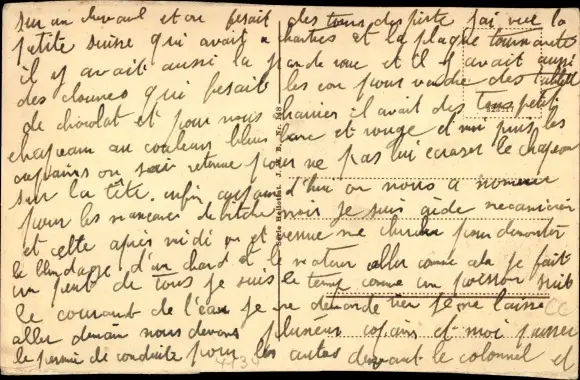 sur un cheval et on fesait des tours de piste j'ai vue la
petite suisse qui avait a charties et la plaque tournante
il y avait aussi la grande roue et il y avait aussi
des clowns qui fesait les con pour vendre des tablett
de chocolat et pour nous charrier il avait des tous petit
chapeau au couleurs bleu blanc et rouge d'un puis les
copains on sai retenue pour ne pas lui ecraser le chapeau
sur la tête. enfin aujourd'hui on nous a nommer
pour les manœuvres de bitche moi je suis aide mecanicien
et cette après midi on et venue me chercher pour demonter
le blindage d'un chard et le moteur aller comme cela je fait
un peut de tous je suis le temp comme un poisson suit
le courant de l'eau je ne demande rien je me laisse
aller demain nous devons plusieur copain et moi passer
le permie de conduire pour les autos devant le colonnel et
Série Hellotint. J. M. B. Nr. 248
4438
CC